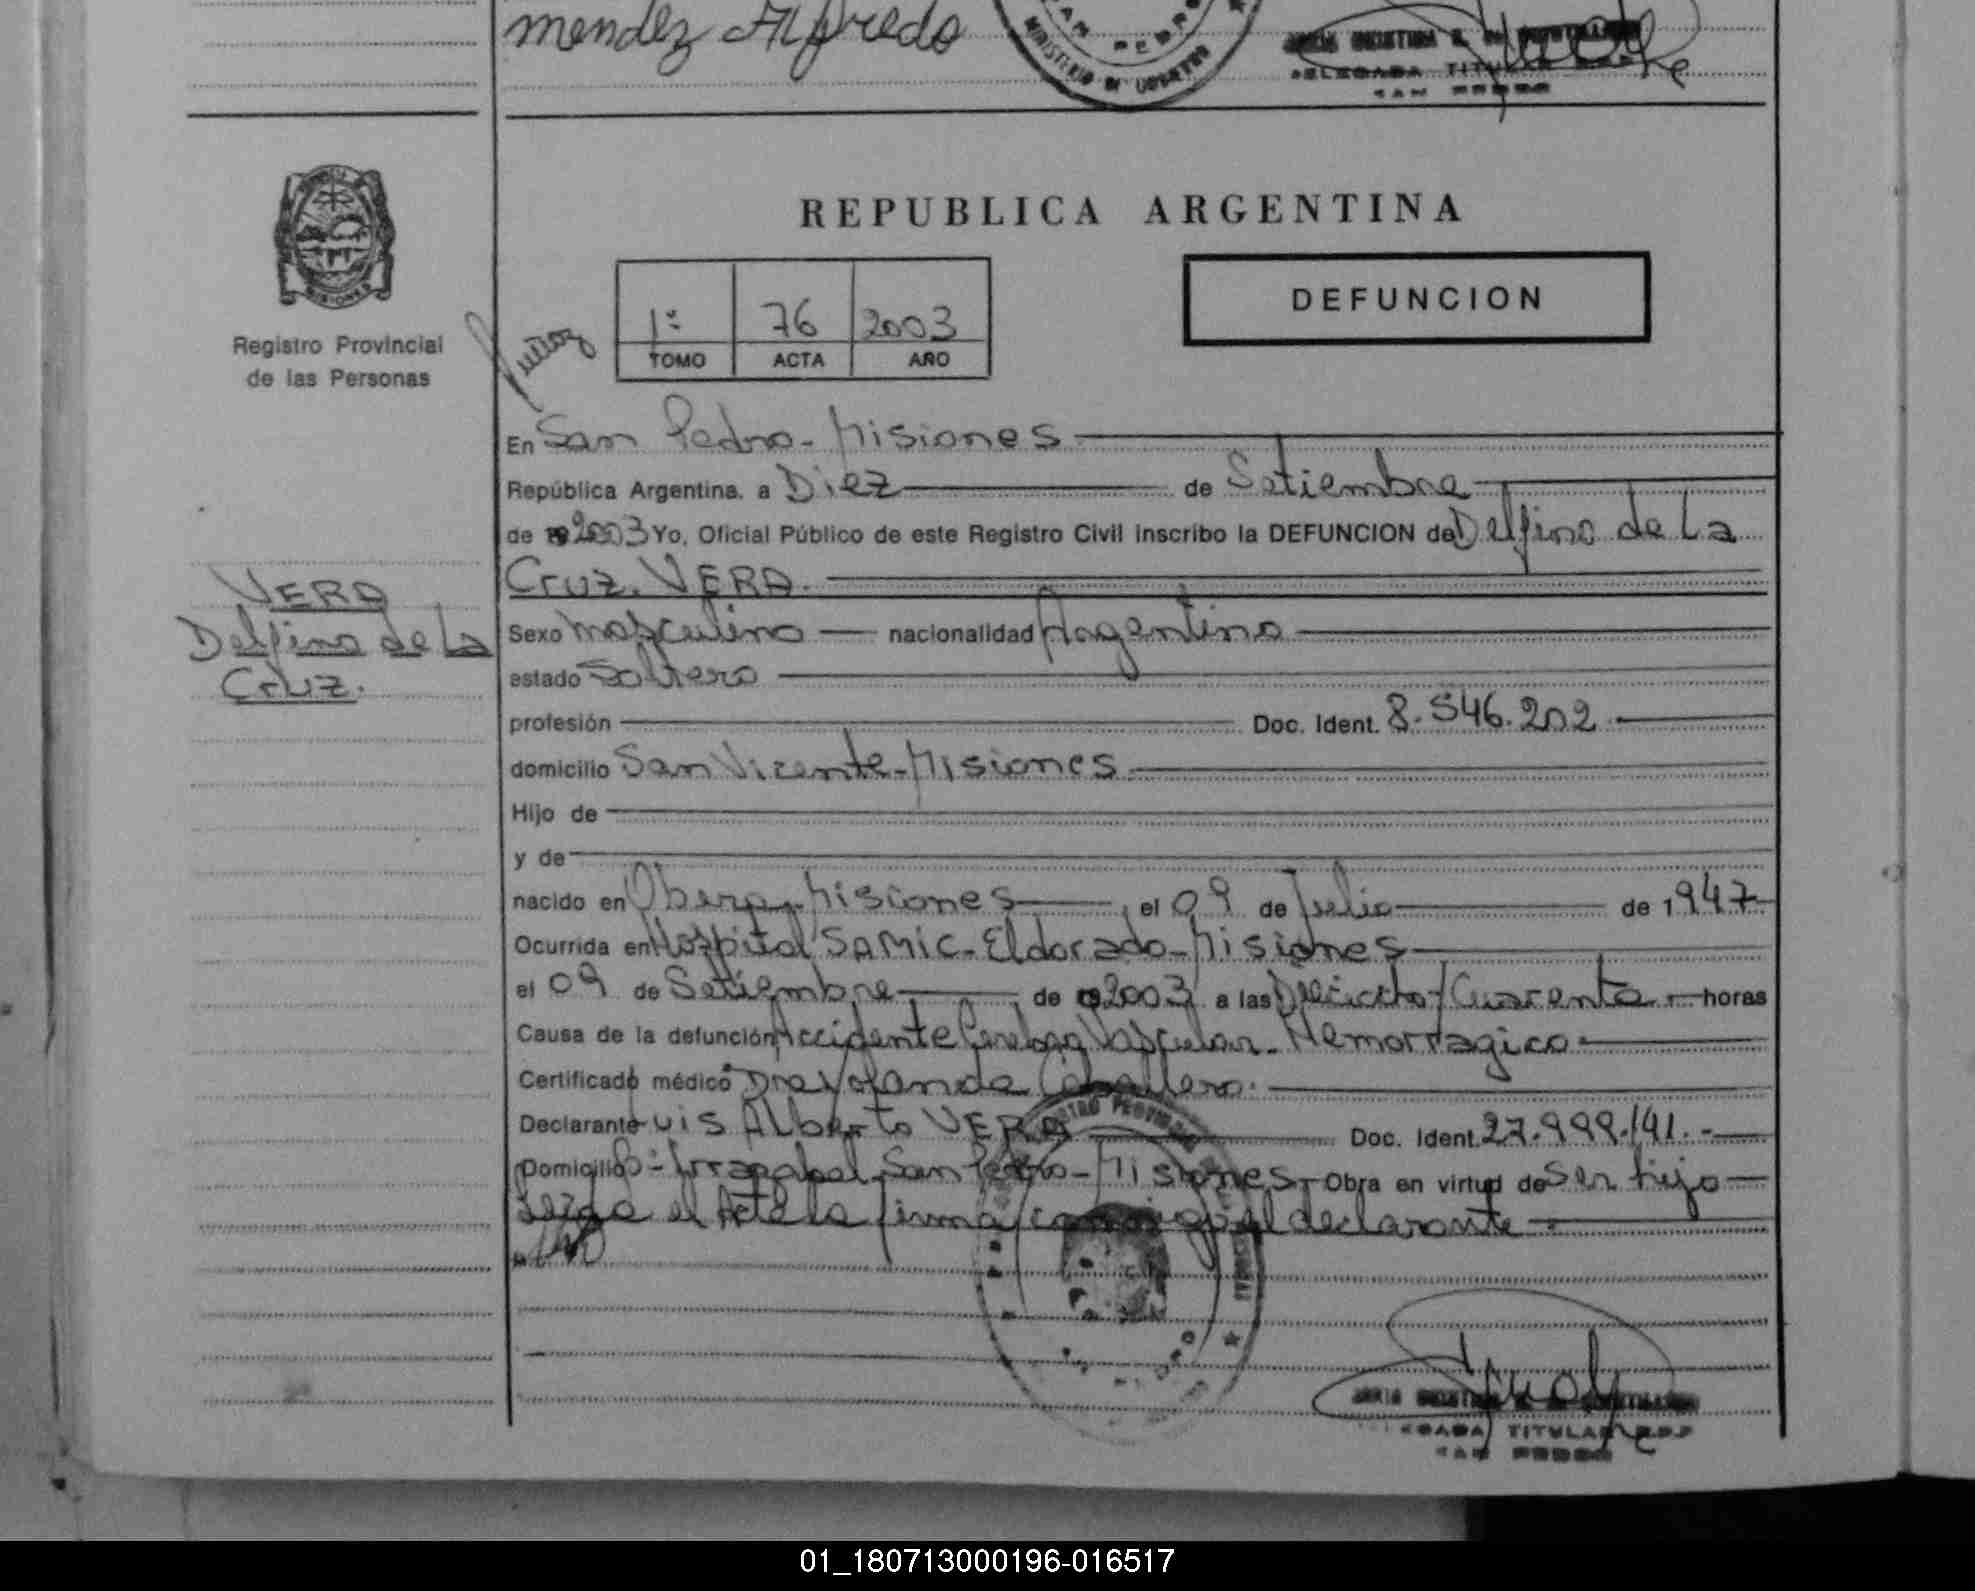 mendez Alfredo
SAN PEDRO
MINISTERIO DE GOBIERNO
DELEGADA TITULAR
SAN PEDRO
REPUBLICA ARGENTINA
MISIONES
Registro Provincial
de las Personas
1º 76 2003
TOMO ACTA AÑO
DEFUNCION
En San Pedro - Misiones
República Argentina, a Diez de Setiembre
de 2003 Yo, Oficial Público de este Registro Civil inscribo la DEFUNCION de Delfino de La
Cruz. VERA.
VERA
Delfino de La
Cruz.
Sexo Masculino nacionalidad Argentino
estado Soltero
profesión Doc. Ident. 8.546.202
domicilio San Vicente - Misiones
Hijo de
y de
nacido en Obera - Misiones, el 09 de Julio de 1947
Ocurrida en Hospital SAMIC - Eldorado - Misiones
el 09 de Setiembre de 2003 a las Dieciocho/Cuarenta horas
Causa de la defunción Accidente Cerebro Vascular - Hemorragico
Certificado médico Dra Yolanda Caballero.
Declarante Luis Alberto VERA Doc. Ident. 27.999.141.-
Domicilio Bº Irrazabal San Pedro - Misiones - Obra en virtud de Ser hijo
Leida el Acta la firma conmigo el declarante
TITULAR R.P.P
SAN PEDRO
01_180713000196-016517